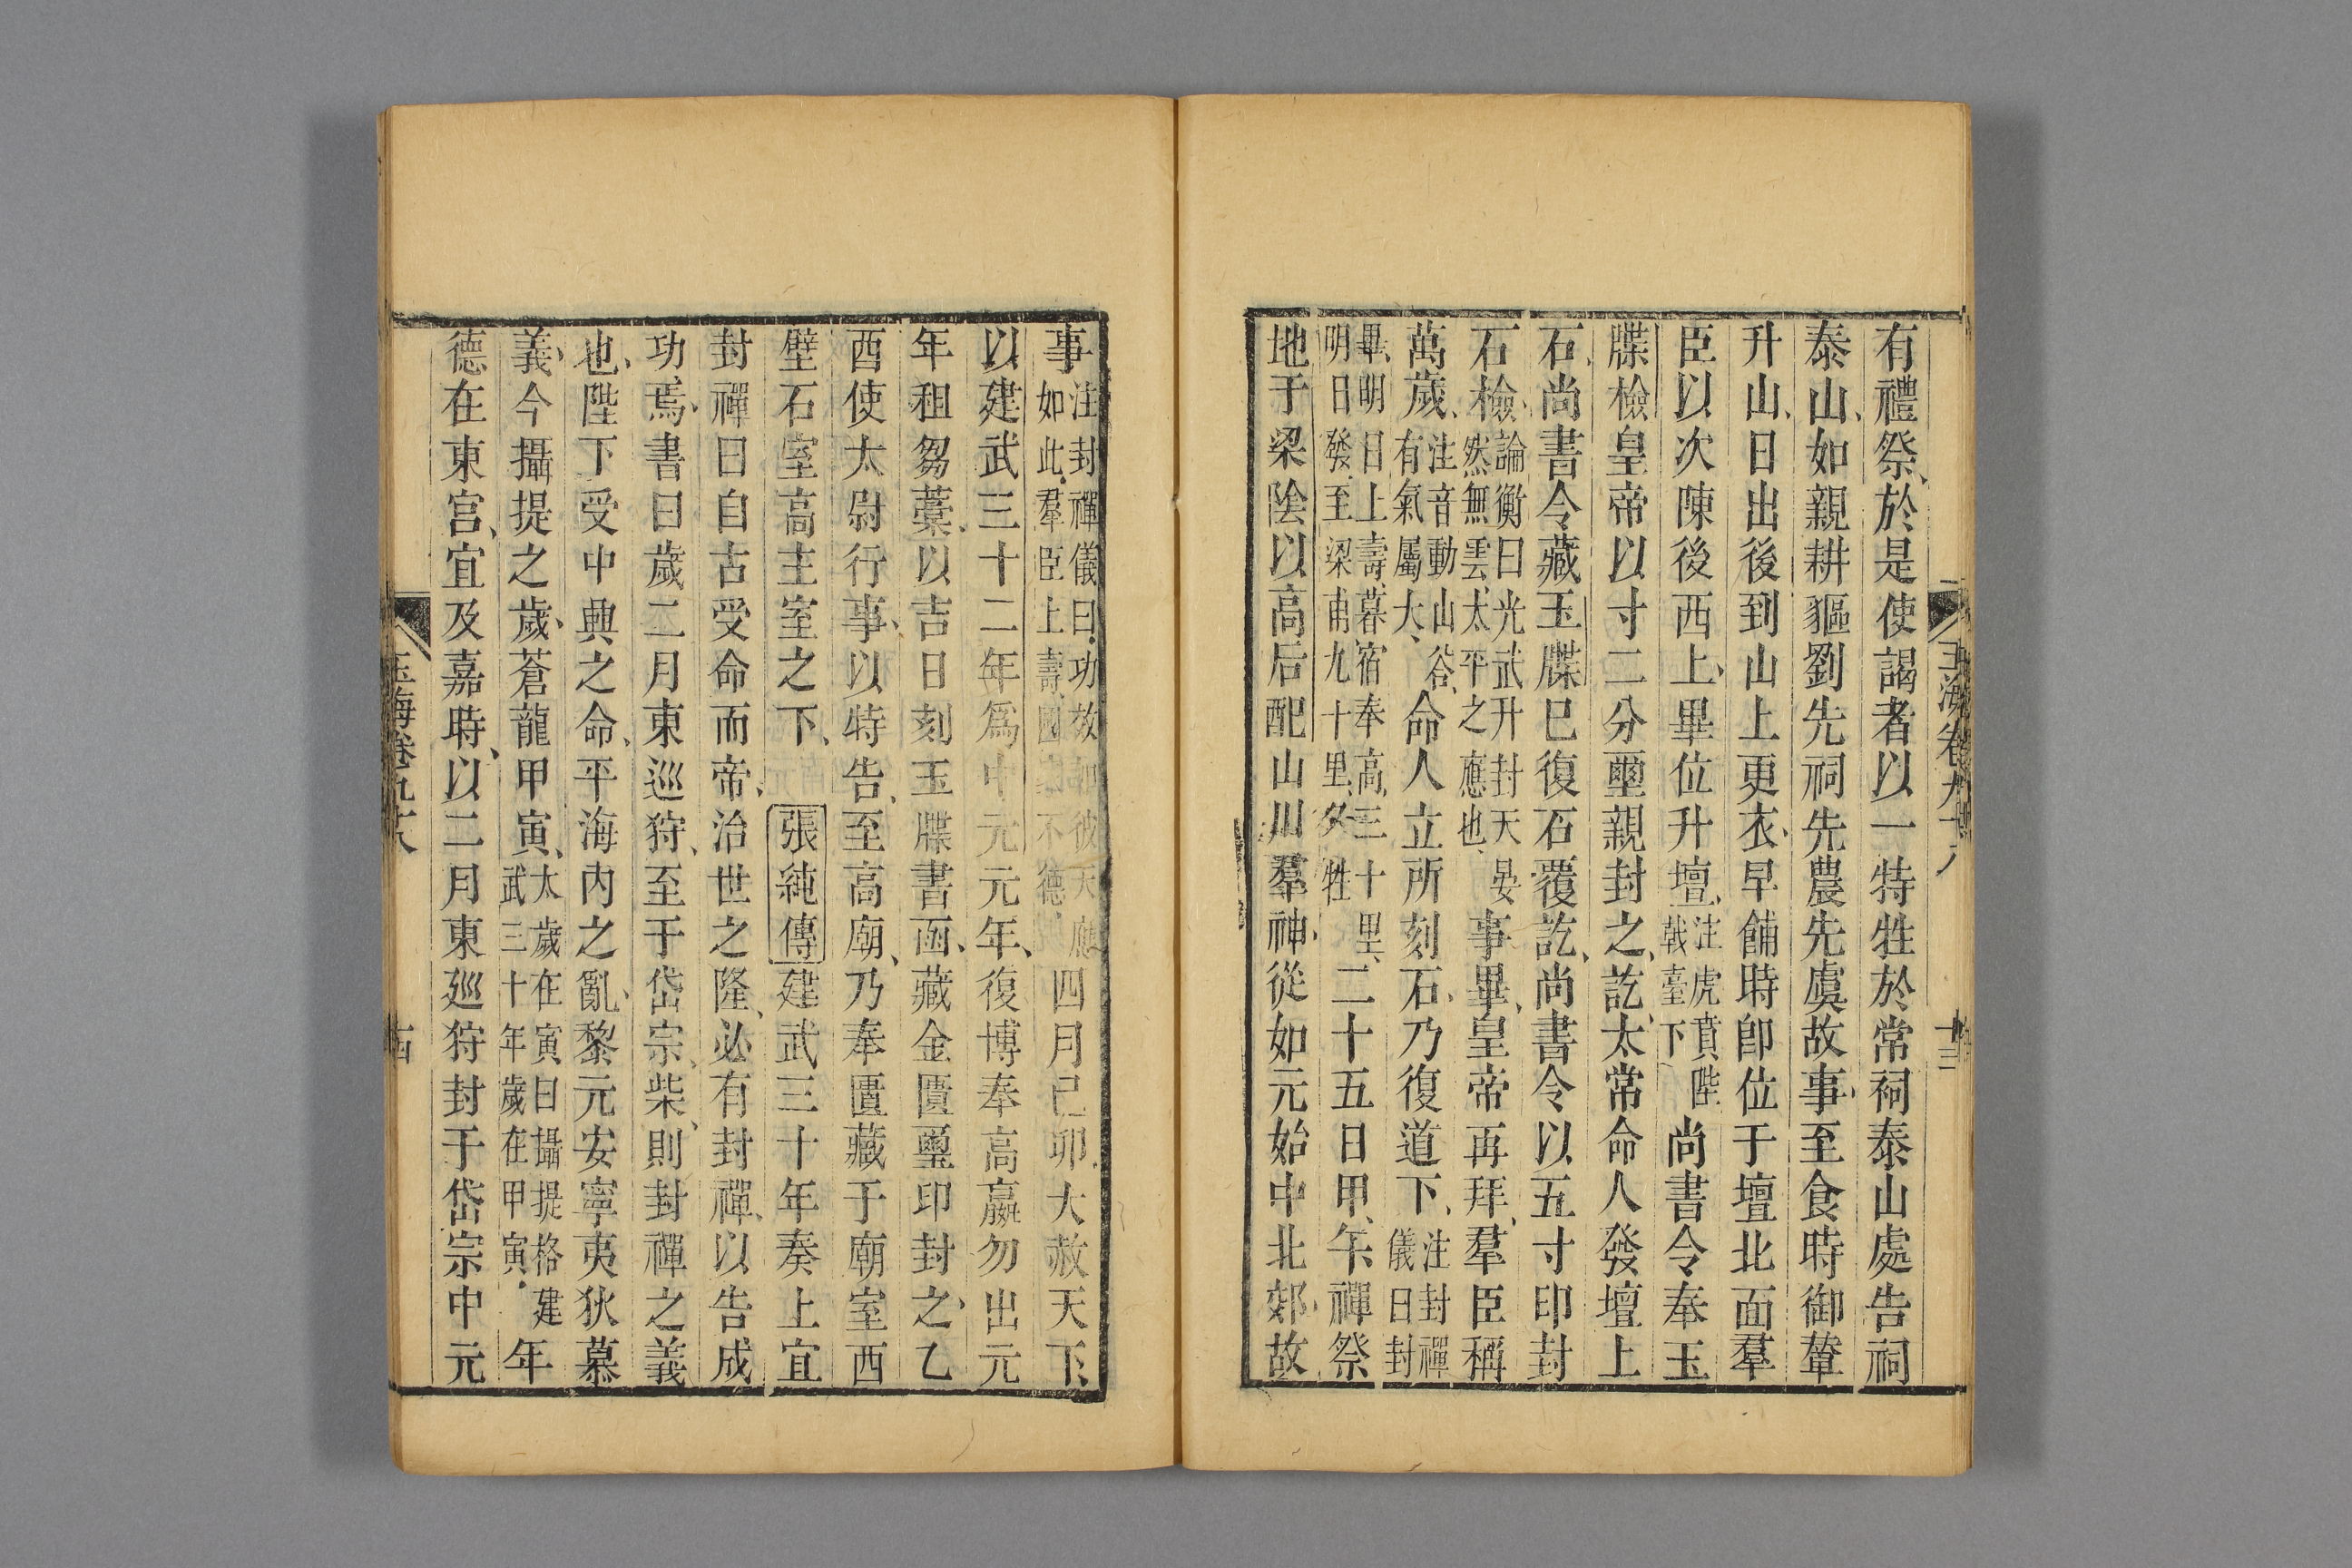 玉海卷九十八 十三
有禮祭、於是使謁者以一特牲於常祠泰山處告祠
泰山、如親耕貙劉先祠先農先虞故事、至食時御輦
升山、日出後到山上更衣、早餔時卽位于壇北面羣
臣以次陳後西上、畢位升壇、注虎賁陛戟臺下尚書令奉玉
牒檢皇帝以寸二分璽親封之、訖、太常命人發壇上
石、尚書令藏玉牒已復石覆訖、尚書令以五寸印封
石檢、論衡曰光武升封天晏然無雲、太平之應也、事畢、皇帝再拜、羣臣稱
萬歲、注音動山谷、有氣屬大、命人立所刻石、乃復道下、注封禪儀日封
畢、明日上壽、暮宿奉高、三十里、明日發、至梁甫九十里、夕牲二十五日甲午、禪祭
地于梁陰以高后配山川羣神、從如元始中北郊、故
事注封禪儀曰、功故如彼天應如此、羣臣上壽、國家不德、四月己卯、大赦天下、
以建武三十二年爲中元元年、復博奉高嬴勿出元
年租芻藁、以吉日刻玉牒書函、藏金匱璽印封之、乙
酉使太尉行事、以特告、至高廟、乃奉匱藏于廟室西
壁石室高主室之下、張純傳建武三十年奏上宜
封禪曰自古受命而帝、治世之隆、必有封禪、以告成
功焉、書曰歲二月東巡狩、至于岱宗、柴、則封禪之義
也、陛下受中興之命、平海內之亂、黎元安寧夷狄慕
義、今攝提之歲、蒼龍甲寅、太歲在寅曰攝提格建武三十年歲在甲寅、年
德在東宮、宜及嘉時、以二月東廵狩封于岱宗中元
玉海卷九十八 十四